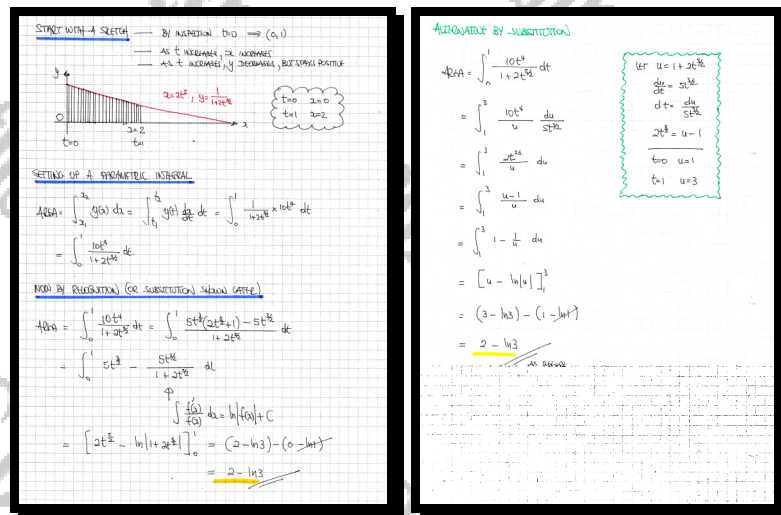 START WITH A SKETCH — BY INSPECTION t=0 ⟹ (0,1)
— AS t INCREASES, x INCREASES
— AS t INCREASES, y DECREASES, BUT STAYS POSITIVE
y
x=2t^5, y=1/(1+2t^(5/2))
t=0 x=0
t=1 x=2
O
x
x=2
t=0
t=1
SETTING UP A PARAMETRIC INTEGRAL
AREA = ∫_{x₁}^{x₂} y(x) dx = ∫_{t₁}^{t₂} y(t) dx/dt dt = ∫_0^1 1/(1+2t^(5/2)) × 10t^4 dt
= ∫_0^1 10t^4/(1+2t^(5/2)) dt
NOW BY RECOGNITION (OR SUBSTITUTION SHOWN LATER)
AREA = ∫_0^1 10t^4/(1+2t^(5/2)) dt = ∫_0^1 (5t^(3/2)(2t^(5/2)+1) − 5t^(3/2))/(1+2t^(5/2)) dt
= ∫_0^1 5t^(3/2) − 5t^(3/2)/(1+2t^(5/2)) dt
∫ f'(x)/f(x) dx = ln|f(x)| + C
= [2t^(5/2) − ln|1+2t^(5/2)|]_0^1 = (2−ln3)−(0−ln1)
= 2 − ln3
ALTERNATIVE BY SUBSTITUTION
AREA = ∫_0^1 10t^4/(1+2t^(5/2)) dt
= ∫_1^3 10t^4/u du/(5t^(3/2))
= ∫_1^3 2t^(5/2)/u du
= ∫_1^3 (u−1)/u du
= ∫_1^3 1 − 1/u du
= [u − ln|u|]_1^3
= (3−ln3) − (1−ln1)
= 2 − ln3
AS BEFORE
LET u = 1+2t^(5/2)
du/dt = 5t^(3/2)
dt = du/(5t^(3/2))
2t^(5/2) = u−1
t=0 u=1
t=1 u=3